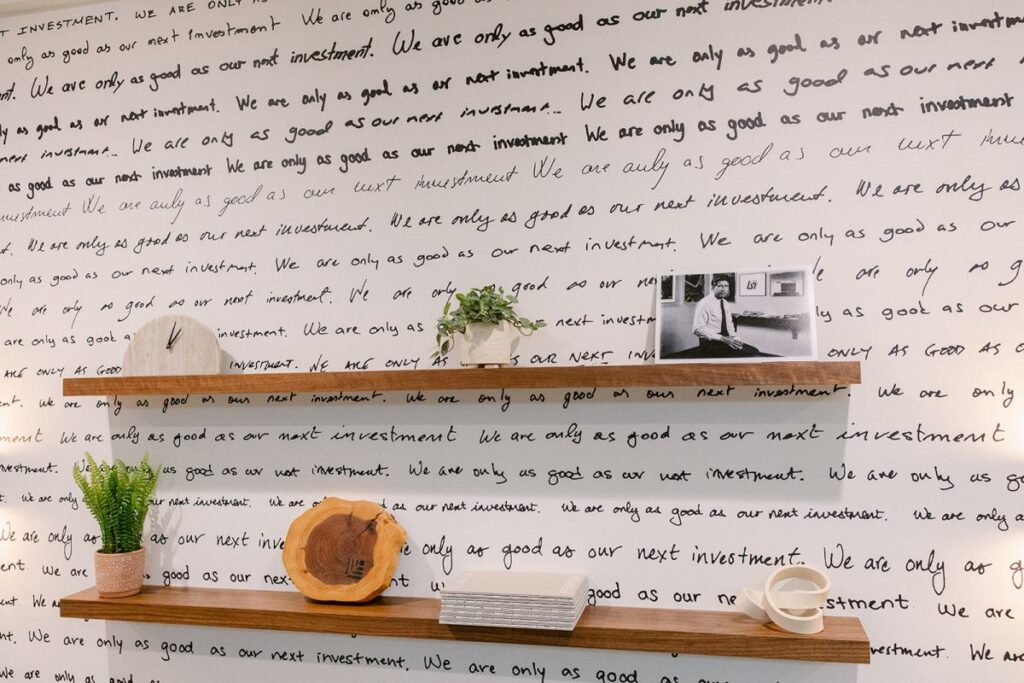 T INVESTMENT. WE ARE ONLY AS GOOD
only as good as our next investment We are only as good as our
nt. We are only as good as our next investment. We are only as good as our next investment
ly as good as our next investment. We are only as good as our next investment. We are only as good as our next investment
next investment.. We are only as good as our next investment... We are only as good as our next
as good as our next investment We are only as good as our next investment We are only as good as our next investment
investment We are only as good as our next investment We are only as good as our next inve
t. We are only as good as our next investment. We are only as good as our next investment. We are only as
only as good as our next investment. We are only as good as our next investment. We are only as good as our
We are only as good as our next investment. We are only as good as our ne We are only as g
as good investment. We are only as next investm only as good as our
ARE ONLY AS GOOD INVESTMENT. WE ARE ONLY AS OUR NEXT INV ONLY AS GOOD AS O
ent. We are only as good as our next investment. We are only as good as our next investment. We are only
ment We are only as good as our next investment We are only as good as our next investment
investment. as good as our next investment. We are only as good as our next investment. We are only as go
t. We are only our next investment. We are as our next investment. We are only as good as our next investment. We are only a
We are only as good as our next inve only as good as our next investment. We are only as g
ment We are good as our next W our next
nt. We a as our ne stment We are
We are only as good as our next investment. We are only as good as our next investment. We are
We are only as good as We are only as good as our